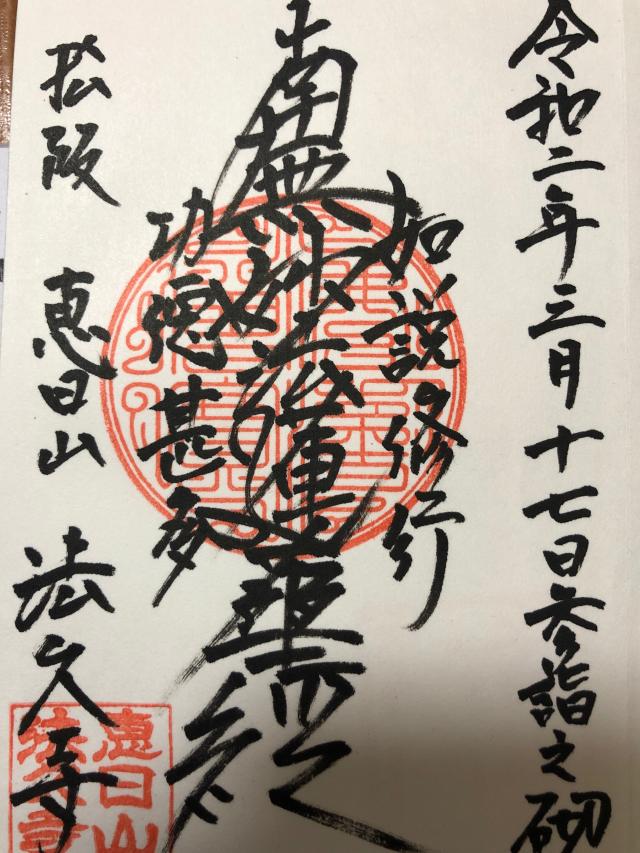 令和二年三月十七日参詣之砌
如説修行
南無妙法蓮華経
功徳甚多
松阪 恵日山 法久寺
恵日山
法久寺